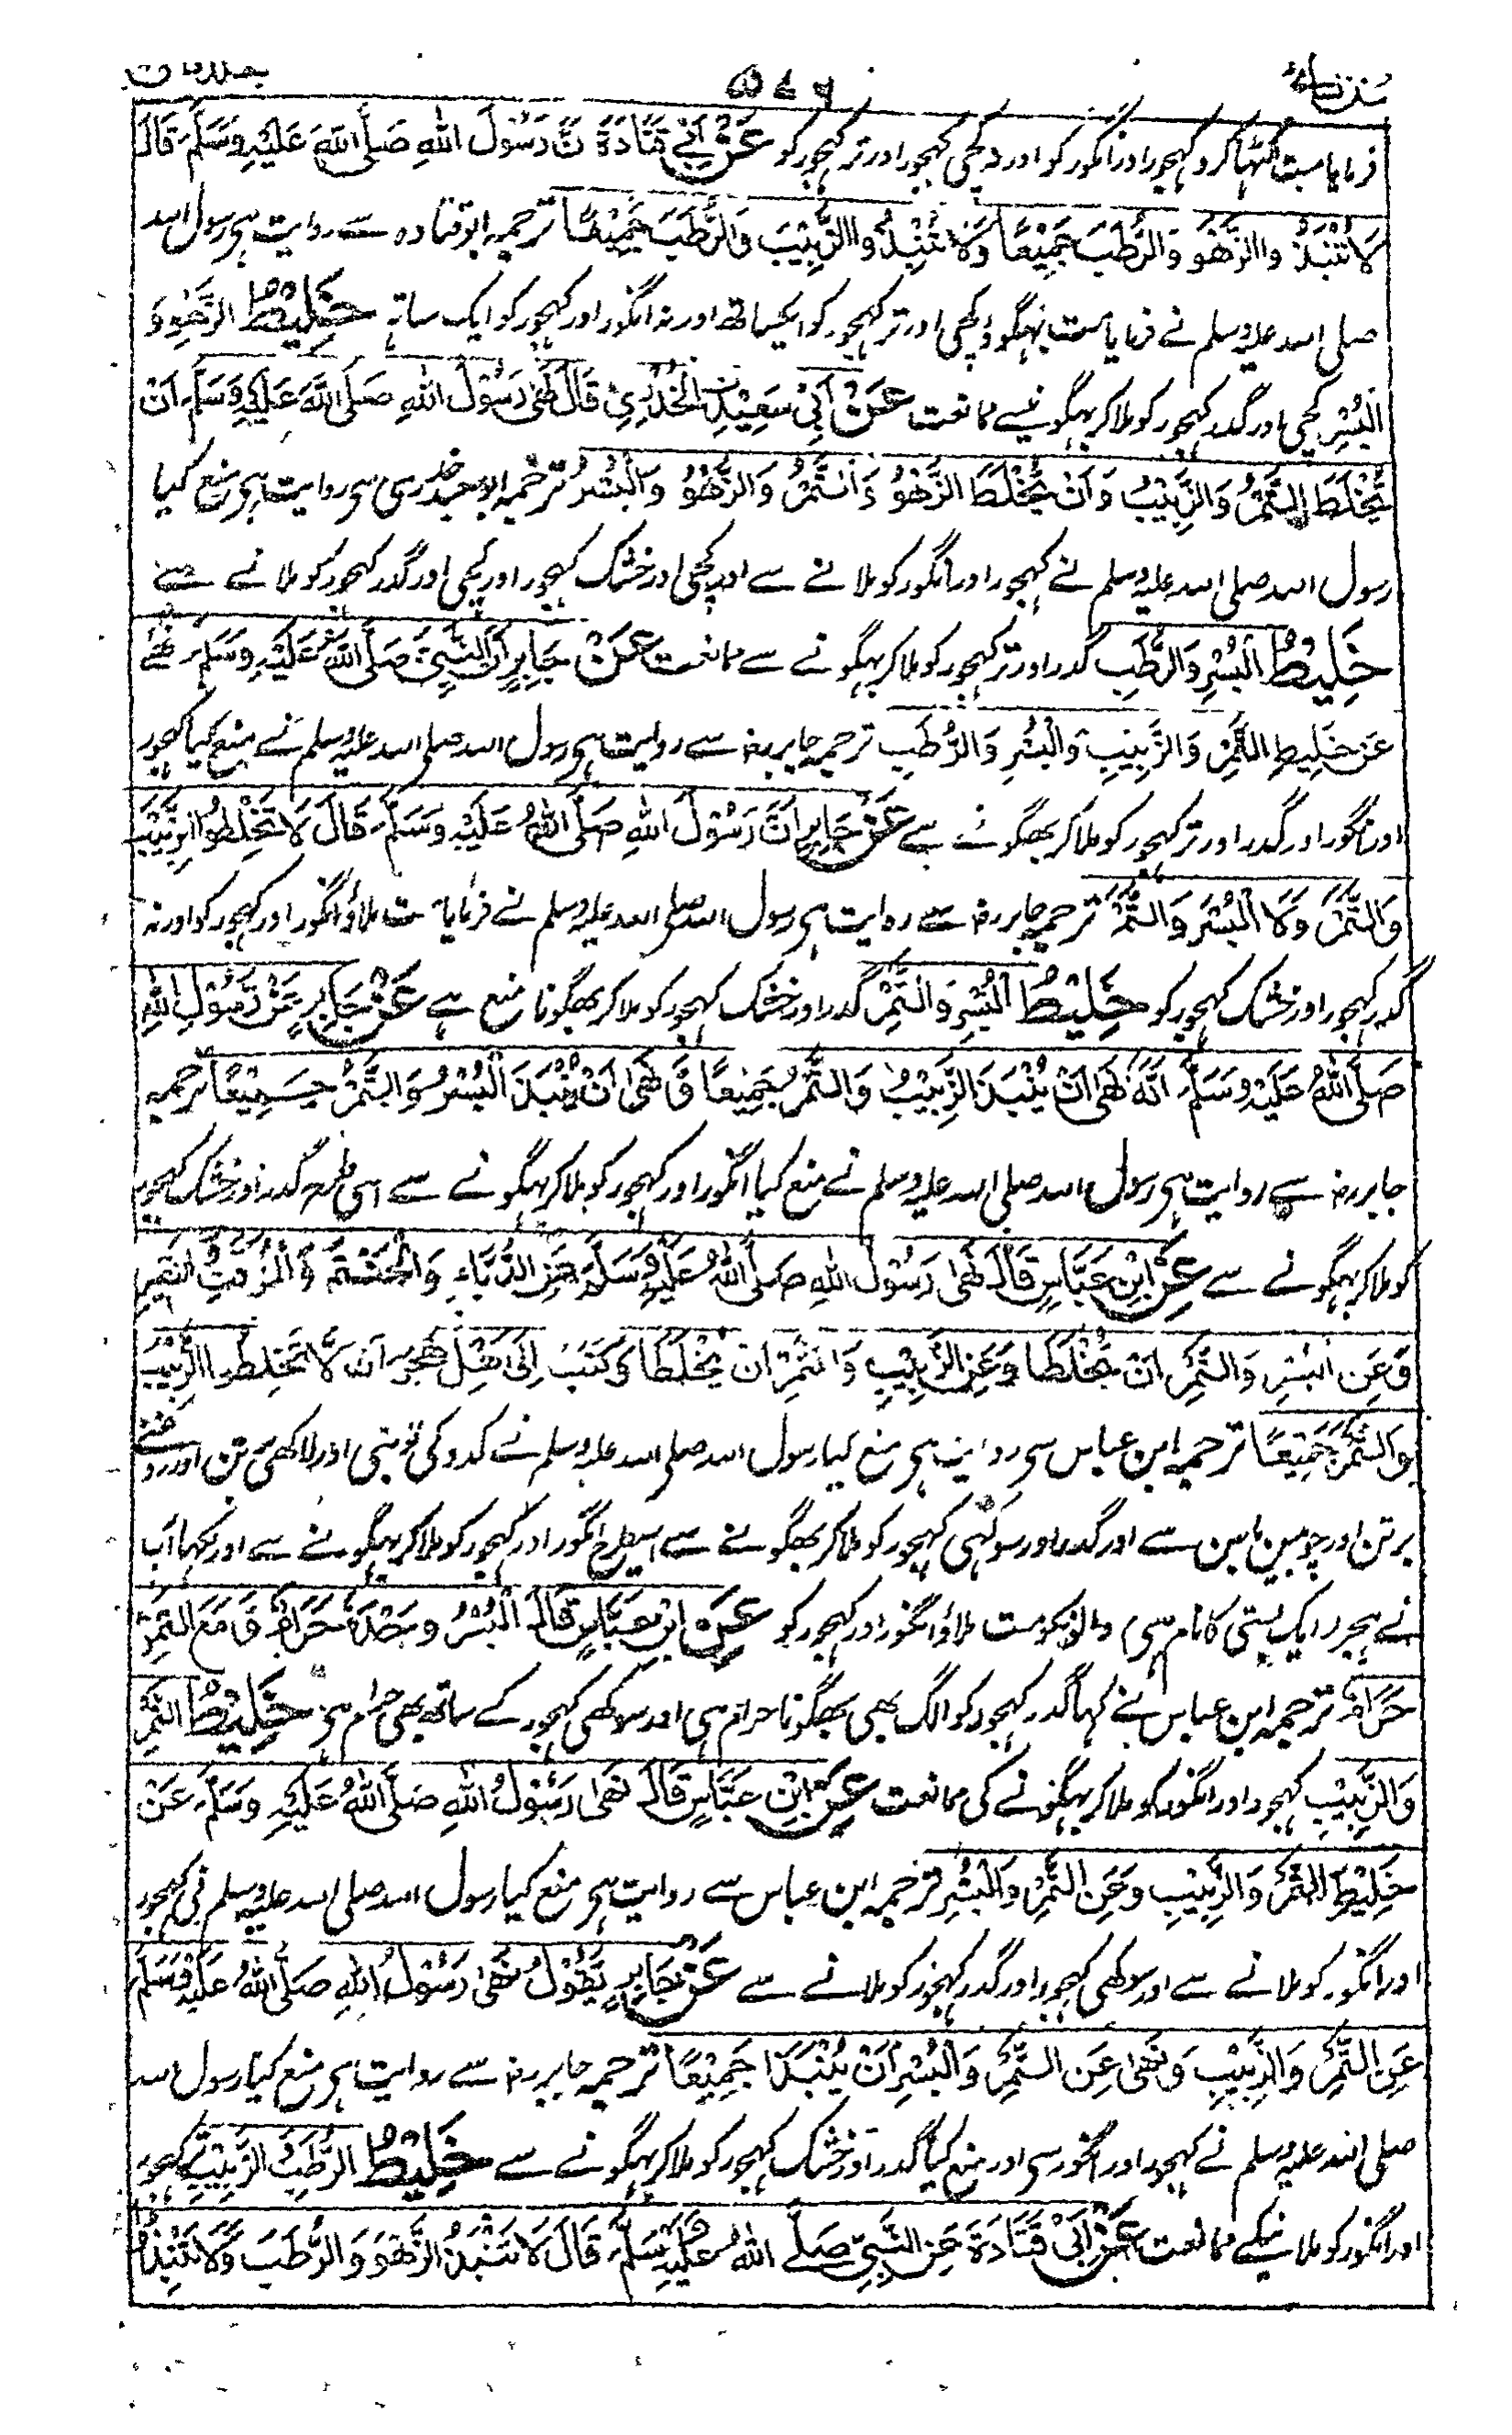 سنن نسائی ۵۷۶ جلد ثالث
فرمایا مت اکٹھا کرو کہجور اور انگور کو اور نہ کچی کہجور اور تر کہجور کو عَنْ اَبِیْ قَتَادَةَ نَّ رَسُوْلَ اللهِ صَلَّى اللهُ عَلَيْهِ وَسَلَّمَ قَالَ
لَا تُنْبَذُوا الزَّهْوَ وَالرُّطَبَ جَمِيْعًا وَلَا تَنْبِذُوا الزَّبِيْبَ وَالرُّطَبَ جَمِيْعًا ترجمہ ابو قتادہ سے روایت ہی رسول اللہ
صلی اللہ علیہ وسلم نے فرمایا مت بہگوؤ کچی اور تر کہجور کو ایکساتھ اور نہ انگور اور کہجور کو ایک ساتہ خَلِيْطُ الزَّهْوِ وَ
الْبُسْرِ کچی اور گدر کہجور کو ملا کر بہگونیسے ممانعت عَنْ اَبِیْ سَعِيْدِ نِ الْخُدْرِيِّ قَالَ نَهٰى رَسُوْلُ اللهِ صَلَّى اللهُ عَلَيْهِ وَسَلَّمَ اَنْ
يُّخْلَطَ التَّمْرُ وَالزَّبِيْبُ وَاَنْ يُّخْلَطَ الزَّهْوُ وَالتَّمْرُ وَالزَّهْوُ وَالْبُسْرُ ترجمہ ابو سعید خدری سی روایت ہی منع کیا
رسول اللہ صلی اللہ علیہ وسلم نے کہجور اور انگور کو ملانے سے اور کچی اور خشک کہجور اور کچی اور گدر کہجور کو ملانے سے
خَلِيْطُ الْبُسْرِ وَالرُّطَبِ گدر اور تر کہجور کو ملا کر بہگونے سے ممانعت عَنْ جَابِرٍ اَنَّ النَّبِيَّ صَلَّى اللهُ عَلَيْهِ وَسَلَّمَ نَهٰى
عَنْ خَلِيْطِ التَّمْرِ وَالزَّبِيْبِ وَالْبُسْرِ وَالرُّطَبِ ترجمہ جابر رض سے روایت ہی رسول اللہ صلی اللہ علیہ وسلم نے منع کیا کہجور
اور انگور اور گدر اور تر کہجور کو ملا کر بھگونے سے عَنْ جَابِرٍ اَنَّ رَسُوْلَ اللهِ صَلَّى اللهُ عَلَيْهِ وَسَلَّمَ قَالَ لَا تَخْلِطُوا الزَّبِيْبَ
وَالتَّمْرَ وَلَا الْبُسْرَ وَالتَّمْرَ ترجمہ جابر رض سے روایت ہی رسول اللہ صلی اللہ علیہ وسلم نے فرمایا مت ملاؤ انگور اور کہجور کو اور نہ
گدر کہجور اور خشک کہجور کو خَلِيْطُ الْبُسْرِ وَالتَّمْرِ گدر اور خشک کہجور کو ملا کر بھگونا منع ہے عَنْ جَابِرٍ عَنْ رَسُوْلِ اللهِ
صَلَّى اللهُ عَلَيْهِ وَسَلَّمَ اَنَّهٗ نَهٰى اَنْ يُنْبَذَ الزَّبِيْبُ وَالتَّمْرُ جَمِيْعًا وَّ نَهٰى اَنْ يُّنْبَذَ الْبُسْرُ وَالتَّمْرُ جَمِيْعًا ترجمہ
جابر رض سے روایت ہی رسول اللہ صلی اللہ علیہ وسلم نے منع کیا انگور اور کہجور کو ملا کر بہگونے سے اسی طرح گدر اور خشک کہجور
کو ملا کر بہگونے سے عَنْ ابْنِ عَبَّاسٍ قَالَ نَهٰى رَسُوْلُ اللهِ صَلَّى اللهُ عَلَيْهِ وَسَلَّمَ عَنِ الدُّبَّاءِ وَالْحَنْتَمِ وَالْمُزَفَّتِ النَّقِيْرِ
وَعَنِ الْبُسْرِ وَالتَّمْرِ اَنْ يُّخْلَطَا وَعَنِ الزَّبِيْبِ وَالتَّمْرِ اَنْ يُخْلَطَا وَكَتَبَ اِلٰى اَهْلِ هَجَرَ اَنْ لَّا تَخْلِطُوا الزَّبِيْبَ
وَالتَّمْرَ جَمِيْعًا ترجمہ ابن عباس سی روایت ہی منع کیا رسول اللہ صلی اللہ علیہ وسلم نے کدو کی تونبی اور لاکھی برتن اور روغنی
برتن اور چوبین باسن سے اور گدر اور سوکہی کہجور کو ملا کر بھگونے سے اسیطرح انگور اور کہجور کو ملا کر بہگونے سے اور لکہا آپ
نے ہجر (ایک بستی کا نام ہی) والونکو مت ملاؤ انگور اور کہجور کو عَنْ ابْنِ عَبَّاسٍ قَالَ الْبُسْرُ وَحْدَهٗ حَرَامٌ وَّ مَعَ التَّمْرِ
حَرَامٌ ترجمہ ابن عباس نے کہا گدر کہجور کو الگ بھی بھگونا حرام ہی اور سوکھی کہجور کے ساتھ بھی حرام ہی خَلِيْطُ التَّمْرِ
وَالزَّبِيْبِ کہجور اور انگور کو ملا کر بہگونے کی ممانعت عَنْ ابْنِ عَبَّاسٍ قَالَ نَهٰى رَسُوْلُ اللهِ صَلَّى اللهُ عَلَيْهِ وَسَلَّمَ عَنْ
خَلِيْطِ التَّمْرِ وَالزَّبِيْبِ وَعَنِ التَّمْرِ وَالْبُسْرِ ترجمہ ابن عباس سے روایت ہی منع کیا رسول اللہ صلی اللہ علیہ وسلم نی کہجور
اور انگور کو ملانے سے اور سوکھی کہجور اور گدر کہجور کو ملانے سے عَنْ جَابِرٍ يَّقُوْلُ نَهٰى رَسُوْلُ اللهِ صَلَّى اللهُ عَلَيْهِ وَسَلَّمَ
عَنِ التَّمْرِ وَالزَّبِيْبِ وَنَهٰى عَنِ التَّمْرِ وَالْبُسْرِ اَنْ يُنْبَذَا جَمِيْعًا ترجمہ جابر رض سے روایت ہی منع کیا رسول اللہ
صلی اللہ علیہ وسلم نے کہجور اور انگور سی اور منع کیا گدر اور خشک کہجور کو ملا کر بہگونے سے خَلِيْطُ الرُّطَبِ الزَّبِيْبِ کہجور
اور انگور کو ملانیکے ممانعت عَنْ اَبِیْ قَتَادَةَ عَنِ النَّبِيِّ صَلَّى اللهُ عَلَيْهِ وَسَلَّمَ قَالَ لَا تَنْبِذُوا الزَّهْوَ وَالرُّطَبَ وَلَا تَنْبِذُوا